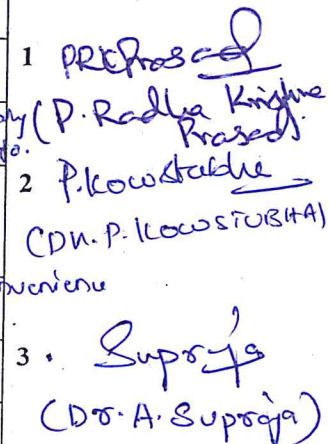 1 PRKPrasad
(P. Radha Krishna
Prasad)
2 P. Kowstubha
(DR. P. KOWSTUBHA)
3. Supraja
(Dr. A. Supraja)